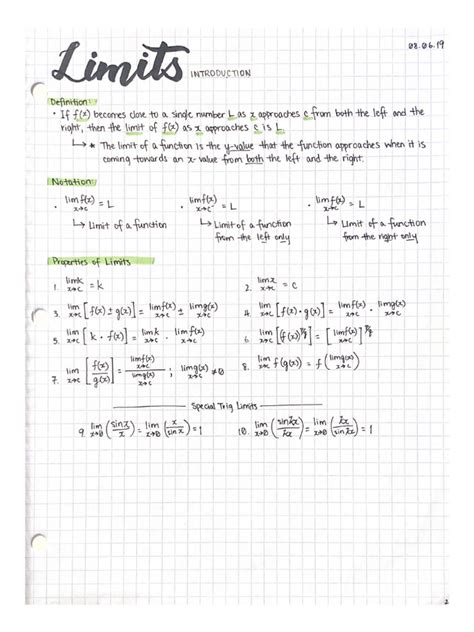 08.06.19
Limits INTRODUCTION
Definition:
• If f(x) becomes close to a single number L as x approaches c from both the left and the
right, then the limit of f(x) as x approaches c is L.
↳ * The limit of a function is the y-value that the function approaches when it is
coming towards an x-value from both the left and the right.
Notation:
• lim f(x) x→c = L • lim f(x) x→c⁻ = L • lim f(x) x→c⁺ = L
↳ Limit of a function ↳ Limit of a function ↳ Limit of a function
from the left only from the right only
Properties of Limits
1. lim k x→c = k 2. lim x x→c = c
3. lim x→c [f(x) ± g(x)] = lim f(x) x→c ± lim g(x) x→c 4. lim x→c [f(x) · g(x)] = lim f(x) x→c · lim g(x) x→c
5. lim x→c [k · f(x)] = lim k x→c · lim f(x) x→c 6. lim x→c [(f(x)) = [lim f(x) x→c]
7. lim x→c [f(x)/g(x)] = lim f(x) x→c / lim g(x) x→c ; lim g(x) x→c ≠ 0 8. lim x→c f(g(x)) = f(lim g(x) x→c)
Special Trig Limits
9. lim x→0 (sin x/x) = lim x→0 (x/sin x) = 1 10. lim x→0 (sin kx/kx) = lim x→0 (kx/sin kx) = 1
2